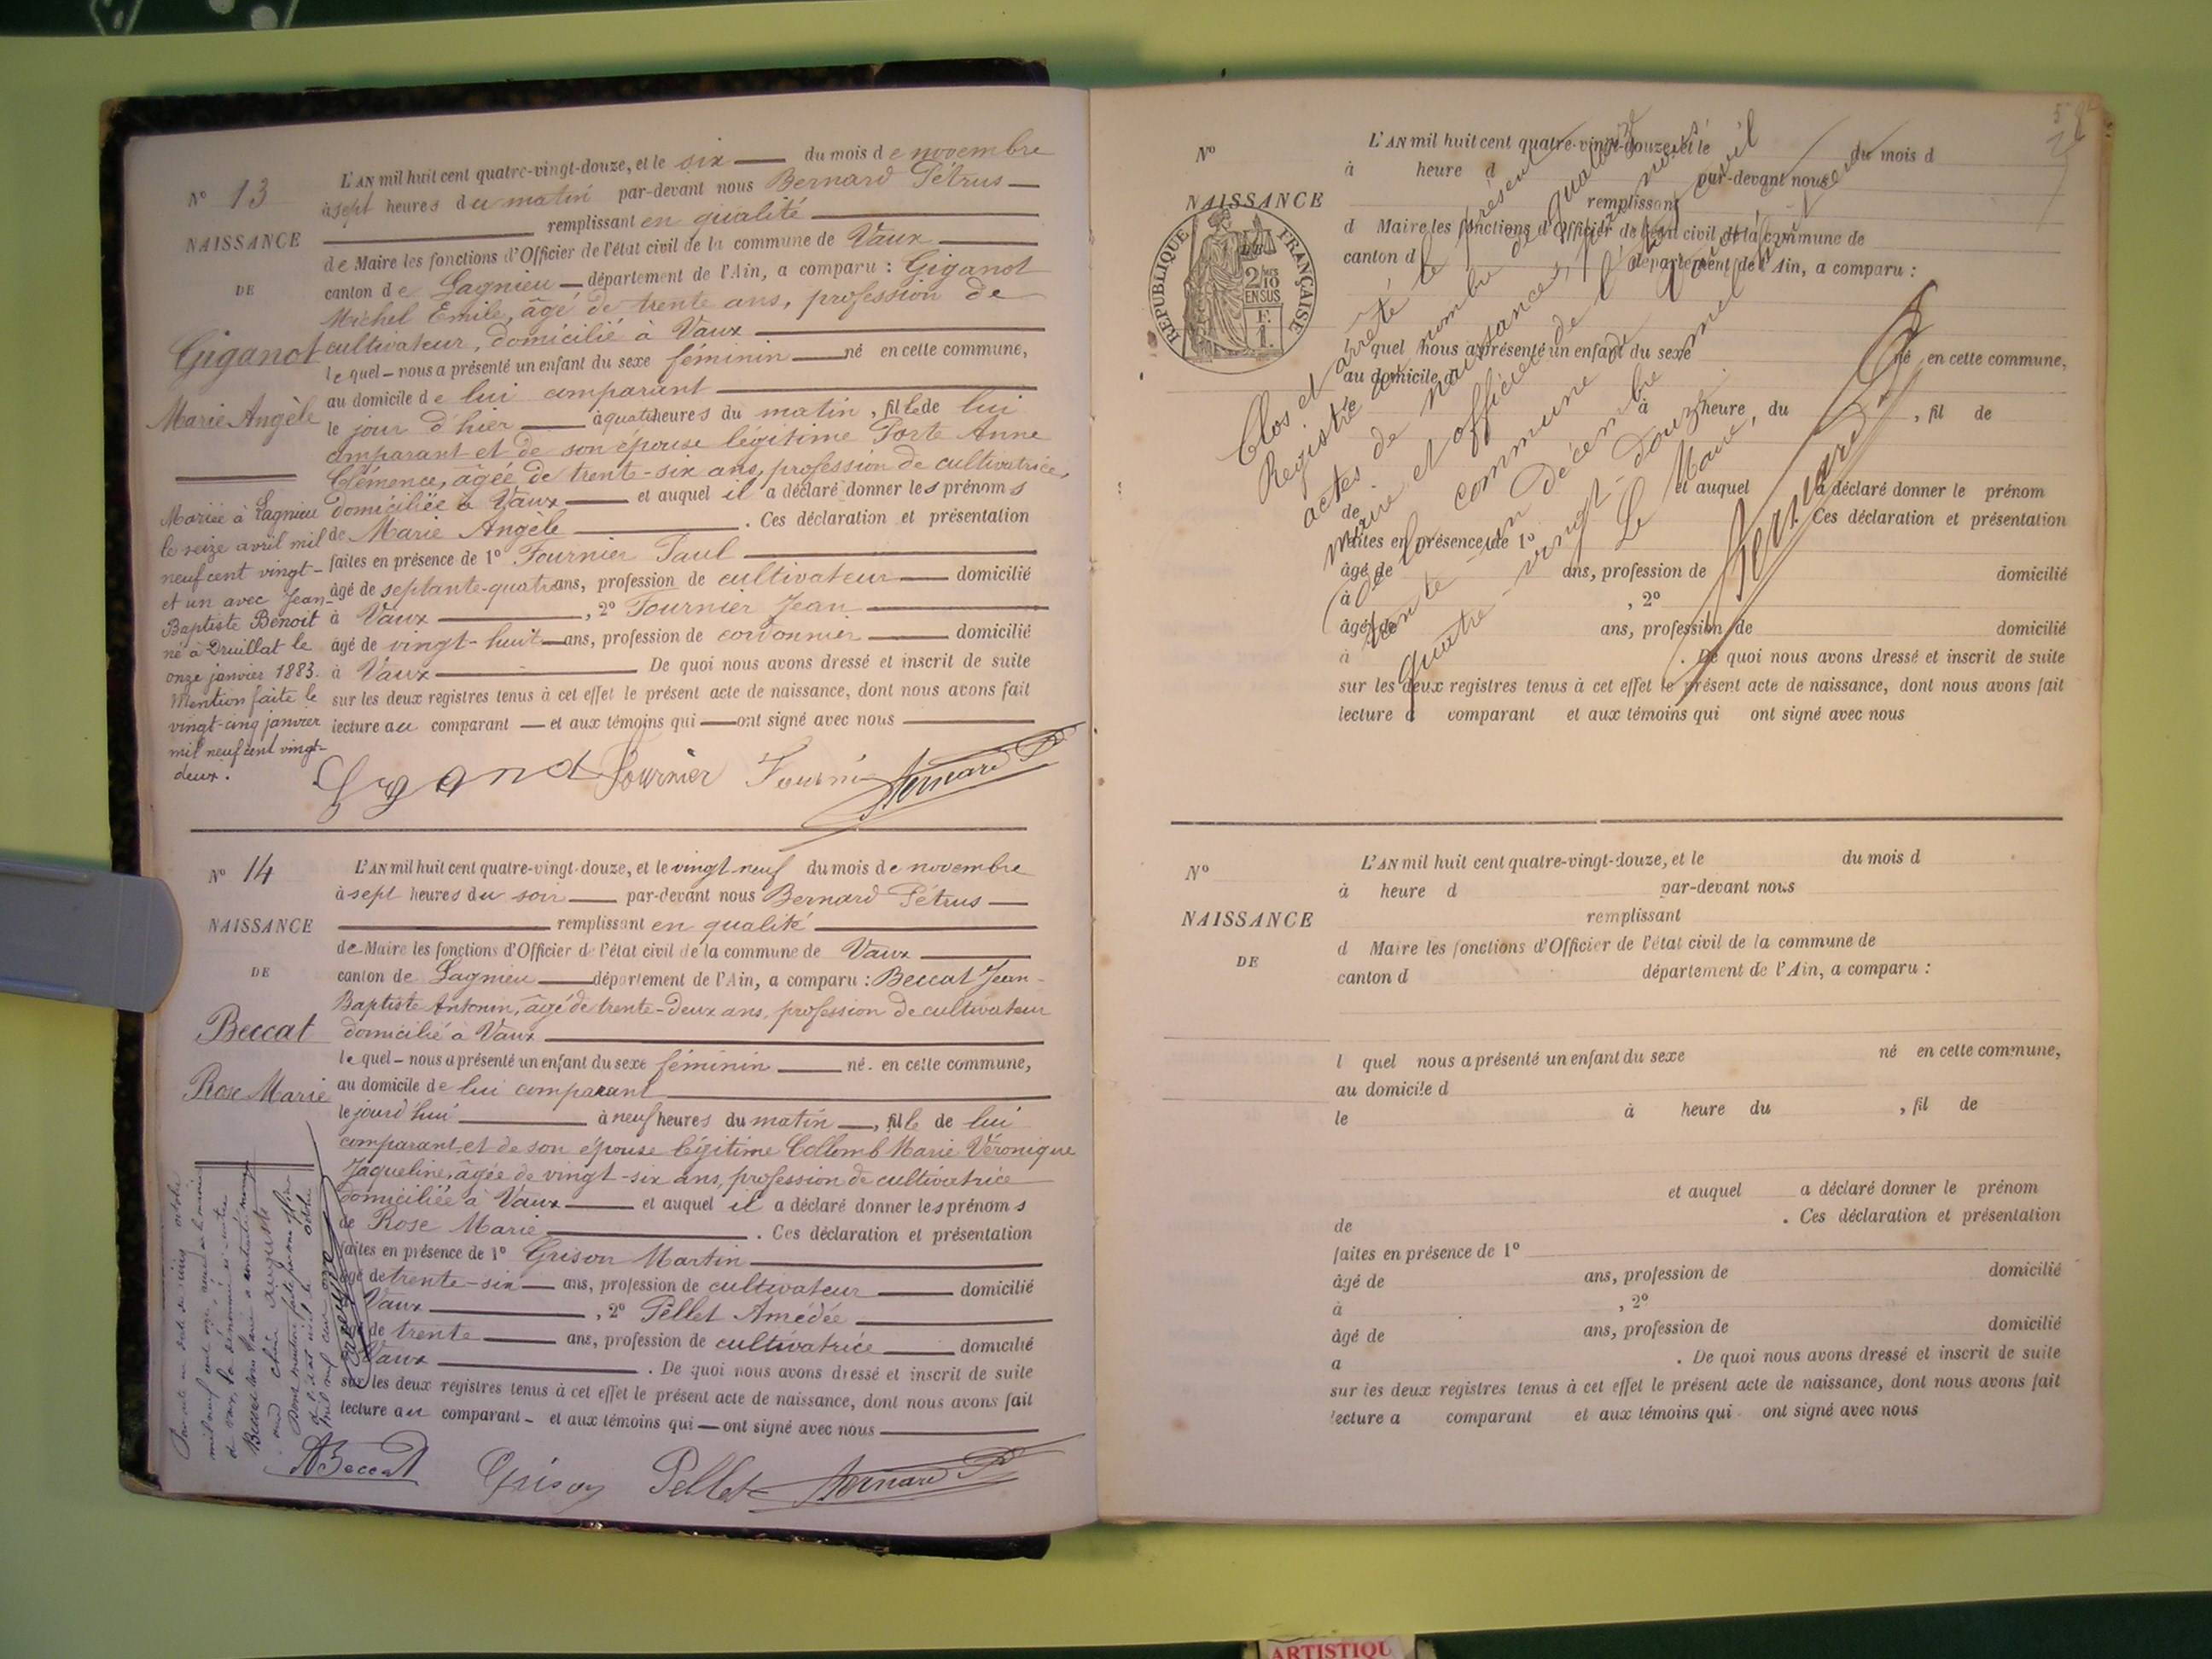 L'AN mil huit cent quatre-vingt-douze, et le six du mois de novembre
N° 13
à sept heures du matin par-devant nous Bernard Pétrus
remplissant en qualité
NAISSANCE
de Maire les fonctions d'Officier de l'état civil de la commune de Vaux
DE
canton de Lagnieu département de l'Ain, a comparu : Giganot
Michel Emile, âgé de trente ans, profession de
Giganot
cultivateur, domicilié à Vaux
lequel nous a présenté un enfant du sexe féminin né en cette commune,
au domicile de lui comparant
Marie Angèle
le jour d'hier à quatre heures du matin, fille de lui
comparant et de son épouse légitime Porte Anne
Clémence, âgée de trente-six ans, profession de cultivatrice,
domiciliée à Vaux et auquel il a déclaré donner les prénoms
de Marie Angèle . Ces déclaration et présentation
faites en présence de 1° Fournier Paul
âgé de septante-quatre ans, profession de cultivateur domicilié
à Vaux , 2° Fournier Jean
âgé de vingt-huit ans, profession de cordonnier domicilié
à Vaux De quoi nous avons dressé et inscrit de suite
sur les deux registres tenus à cet effet le présent acte de naissance, dont nous avons fait
lecture au comparant et aux témoins qui ont signé avec nous
Mariée à Lagnieu
le seize avril mil
neuf cent vingt-
et un avec Jean-
Baptiste Benoit
né à Druillat le
onze janvier 1883.
Mention faite le
vingt-cinq janvier
mil neuf cent vingt-
deux.
Fournier Bernard P
N° 14
L'AN mil huit cent quatre-vingt-douze, et le vingt neuf du mois de novembre
à sept heures du soir par-devant nous Bernard Pétrus
NAISSANCE
remplissant en qualité
de Maire les fonctions d'Officier de l'état civil de la commune de Vaux
DE
canton de Lagnieu département de l'Ain, a comparu : Beccat Jean-
Baptiste Antonin, âgé de trente-deux ans, profession de cultivateur
Beccat
domicilié à Vaux
lequel nous a présenté un enfant du sexe féminin né en cette commune,
Rose Marie
au domicile de lui comparant
le jourd'hui à neuf heures du matin, fille de lui
comparant et de son épouse légitime Collomb Marie Véronique
Jaqueline, âgée de vingt-six ans, profession de cultivatrice
domiciliée à Vaux et auquel il a déclaré donner les prénoms
de Rose Marie . Ces déclaration et présentation
faites en présence de 1° Grison Martin
âgé de trente-six ans, profession de cultivateur domicilié
Vaux , 2° Pellet Amédée
de trente ans, profession de cultivatrice domicilié
Vaux . De quoi nous avons dressé et inscrit de suite
sur les deux registres tenus à cet effet le présent acte de naissance, dont nous avons fait
lecture au comparant et aux témoins qui ont signé avec nous
ABeccat Grison Pellet Bernard P
N°
L'AN mil huit cent quatre-vingt-douze, et le du mois d
à heure d par-devant nous
NAISSANCE
remplissant
d Maire les fonctions d'Officier de l'état civil de la commune de
canton d département de l'Ain, a comparu :
REPUBLIQUE FRANÇAISE
2/10
EN SUS
F.
1.
l quel nous a présenté un enfant du sexe né en cette commune,
au domicile d
le à heure, du , fil de
et auquel a déclaré donner le prénom
de . Ces déclaration et présentation
faites en présence de 1°
âgé de ans, profession de domicilié
à , 2°
âgé de ans, profession de domicilié
à . De quoi nous avons dressé et inscrit de suite
sur les deux registres tenus à cet effet le présent acte de naissance, dont nous avons fait
lecture a comparant et aux témoins qui ont signé avec nous
Clos et arrêté le présent
Registre au nombre de quatorze
actes de naissances, par nous
maire et officier de l'état civil
de la commune de
trente-un décembre mil huit cent
quatre-vingt-douze.
Le Maire,
Bernard P
N°
L'AN mil huit cent quatre-vingt-douze, et le du mois d
à heure d par-devant nous
NAISSANCE
remplissant
d Maire les fonctions d'Officier de l'état civil de la commune de
DE
canton d département de l'Ain, a comparu :
l quel nous a présenté un enfant du sexe né en cette commune,
au domicile d
le à heure du , fil de
et auquel a déclaré donner le prénom
de . Ces déclaration et présentation
faites en présence de 1°
âgé de ans, profession de domicilié
à , 2°
âgé de ans, profession de domicilié
a . De quoi nous avons dressé et inscrit de suite
sur les deux registres tenus à cet effet le présent acte de naissance, dont nous avons fait
lecture a comparant et aux témoins qui ont signé avec nous
ARTISTIQU